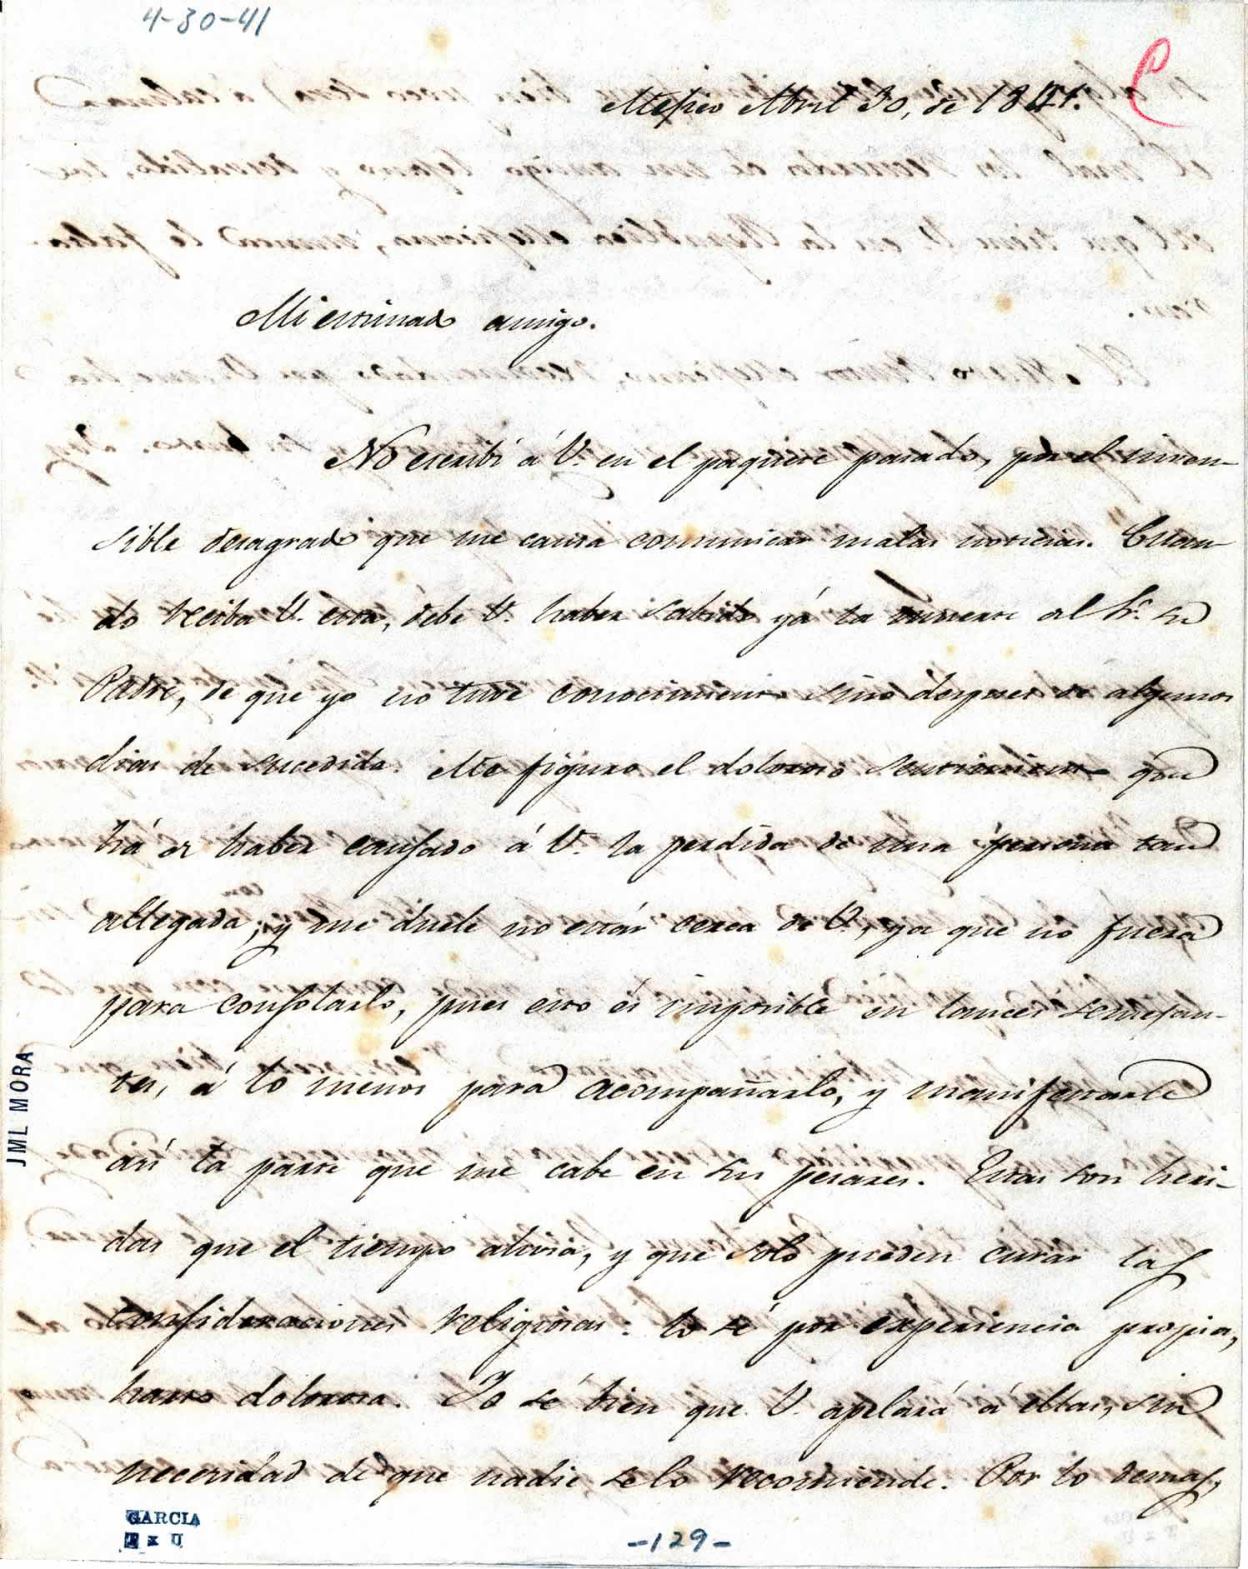 4-30-41
Mexico Abril 30, de 1841.
Mi estimado amigo.
No escribi á V. en el paquete pasado, por el inven-
sible desagrado que me causa comunicar malas noticias. Cuan-
do reciba V. esta, debe V. haber sabido yá la muerte del Sr. su
Padre, de que yo no tuve conocimiento sino despues de algunos
dias de sucedida. Me figuro el doloroso sentimiento que
há de haber causado á V. la perdida de una persona tan
allegada, y me duele no estár cerca de V., ya que no fuera
para consolarlo, pues eso és imposible en lances semejan-
tes, á lo menos para acompañarlo, y manifestarle
así la parte que me cabe en sus pesares. Estas son heri-
das que el tiempo alivia, y que solo pueden curar las
consideraciones religiosas: lo sé por experiencia propia,
harto dolorosa. Yo sé bien que V. apelará á ellas, sin
necesidad de que nadie se lo recomiende. Por lo demas,
JML MORA
GARCIA
-129-